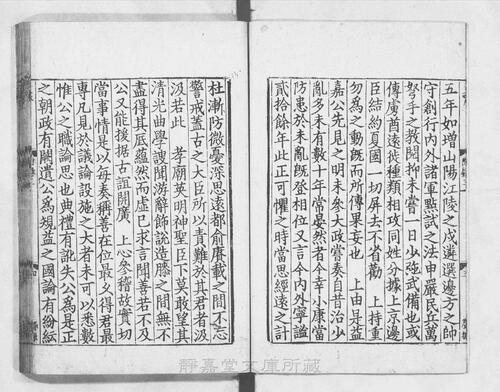 五年如增山陽江陵之戍遴選邊方之帥
守創行内外諸軍㸃試之法申嚴民兵萬
弩手之教閱抑未嘗一日少弛武備也或
傳虜酋遠徙種類相攻同姓分據上京邊
臣結約夏國一切屏去不省勸　上持重
勿爲之動旣而所傳果妄也　上由是益
嘉公先見之明未參大政嘗奏自昔治少
亂多未有數十年當晏然者今幸小康當
防患於未亂旣登相位又言今内外寧謐
貳拾餘年此正可懼之時當思經遠之計
杜漸防微憂深思遠都俞賡載之間不忘
警戒蓋古之大臣所以責難於其君者汲
汲若此　孝廟英明神聖臣下莫敢望其
清光曲學謏聞游辭飾說造膝之間無不
盡得其底蘊然而虛已求言聞善若不及
公又能援据古誼開廣　上心參稽故實切
當事情是以每奏稱善在位最乆得君最
專凡見於議論設施之大者未可以悉數
惟公之職論思也典禮有訛失公爲是正
之朝政有闕遺公爲規益之國論有紛紜
靜嘉堂文庫所蔵